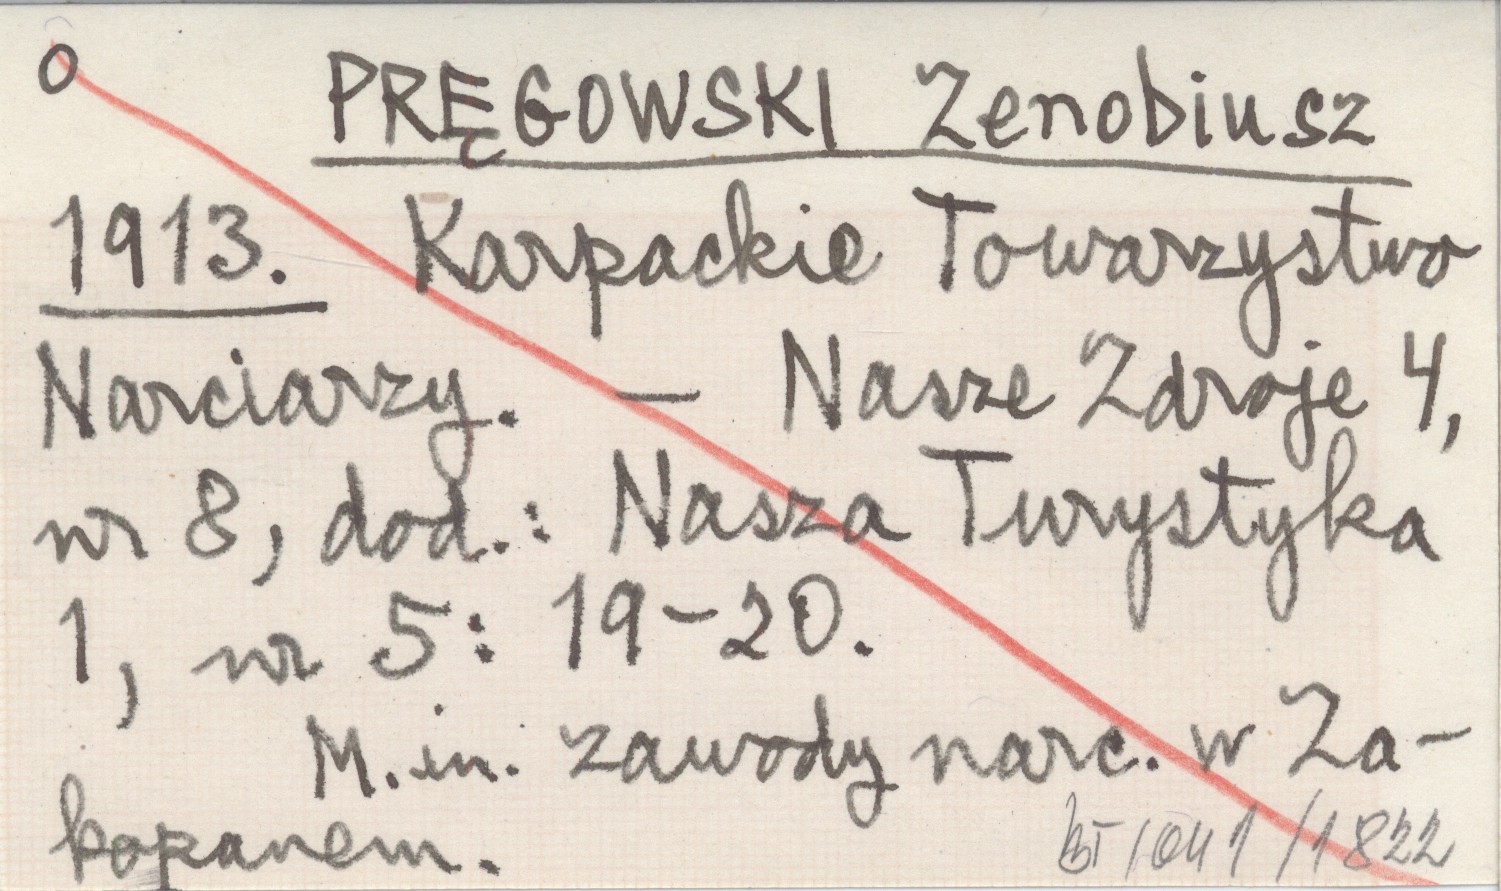 o PRĘGOWSKI Zenobiusz
1913. Karpackie Towarzystwo
Narciarzy. — Nasze Zdroje 4,
nr 8, dod.: Nasza Turystyka
1, nr 5: 19-20.
M.in. zawody narc. w Za-
kopanem.
/1822